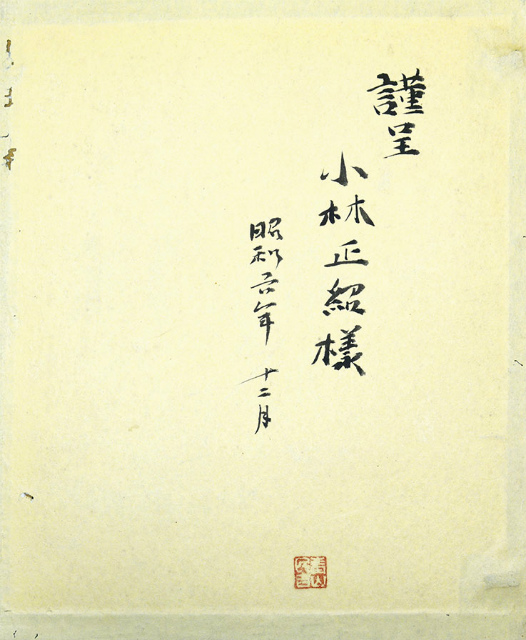 謹呈
小林正紹様
昭和六年 十二月